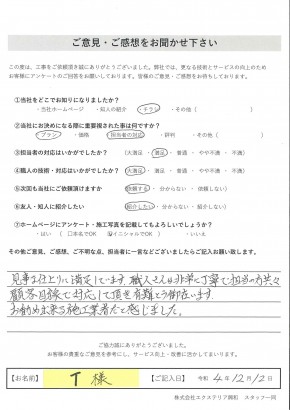 ご意見・ご感想をお聞かせ下さい
この度は、工事をご依頼頂き誠にありがとうございました。弊社では、更なる技術とサービスの向上のため
お客様にアンケートのご回答をお願いしております。皆様のご意見・ご感想をお待ちしております。
①当社をどこでお知りになりましたか?
・当社ホームページ ・知人の紹介 ・チラシ ・その他( )
②当社にお決めになる際に重要視された事は何ですか?
・プラン ・価格 ・担当者の対応 ・評判 ・その他( )
③担当者の対応はいかがでしたか? (大満足 ・ 満足 ・ 普通 ・ やや不適 ・ 不適)
④職人の技術・対応はいかがでしたか? (大満足 ・ 満足 ・ 普通 ・ やや不適 ・ 不適)
⑤次回も当社にご依頼頂けますか (依頼する ・ 分からない ・ 依頼しない)
⑥友人・知人に紹介したい (紹介したい ・ 分からない ・ 紹介しない)
⑦ホームページにアンケート・施工写真を記載してもよろしいでしょうか?
・はい (□本名でOK ☑イニシャルでOK) ・いいえ
その他ご意見、ご感想、ご不明な点、担当者に一言などございましたらご記入お願い致します。
見事な仕上りに満足しています。職人さんも非常に丁寧で担当の方共々
顧客目線で対応して頂き有難とう御座います。
お勧め出来る施工業者だと感じました。
ご協力誠にありがとうございました。
お客様の貴重なご意見を参考にし、サービス向上・改善に活かしてまいります。
【お名前】 T 様 【ご記入日】 令和 4年12月12日
株式会社エクステリア興和 スタッフ一同